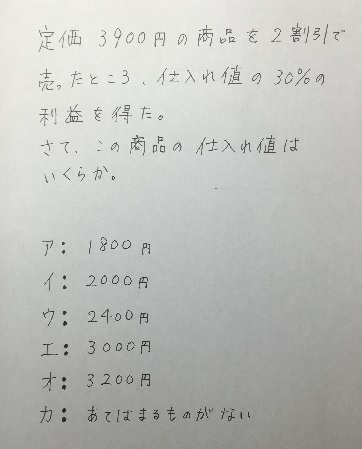 定価 3900円の商品を2割引で
売ったところ、仕入れ値の30%の
利益を得た。
さて、この商品の仕入れ値は
いくらか。
ア: 1800円
イ: 2000円
ウ: 2400円
エ: 3000円
オ: 3200円
カ: あてはまるものがない